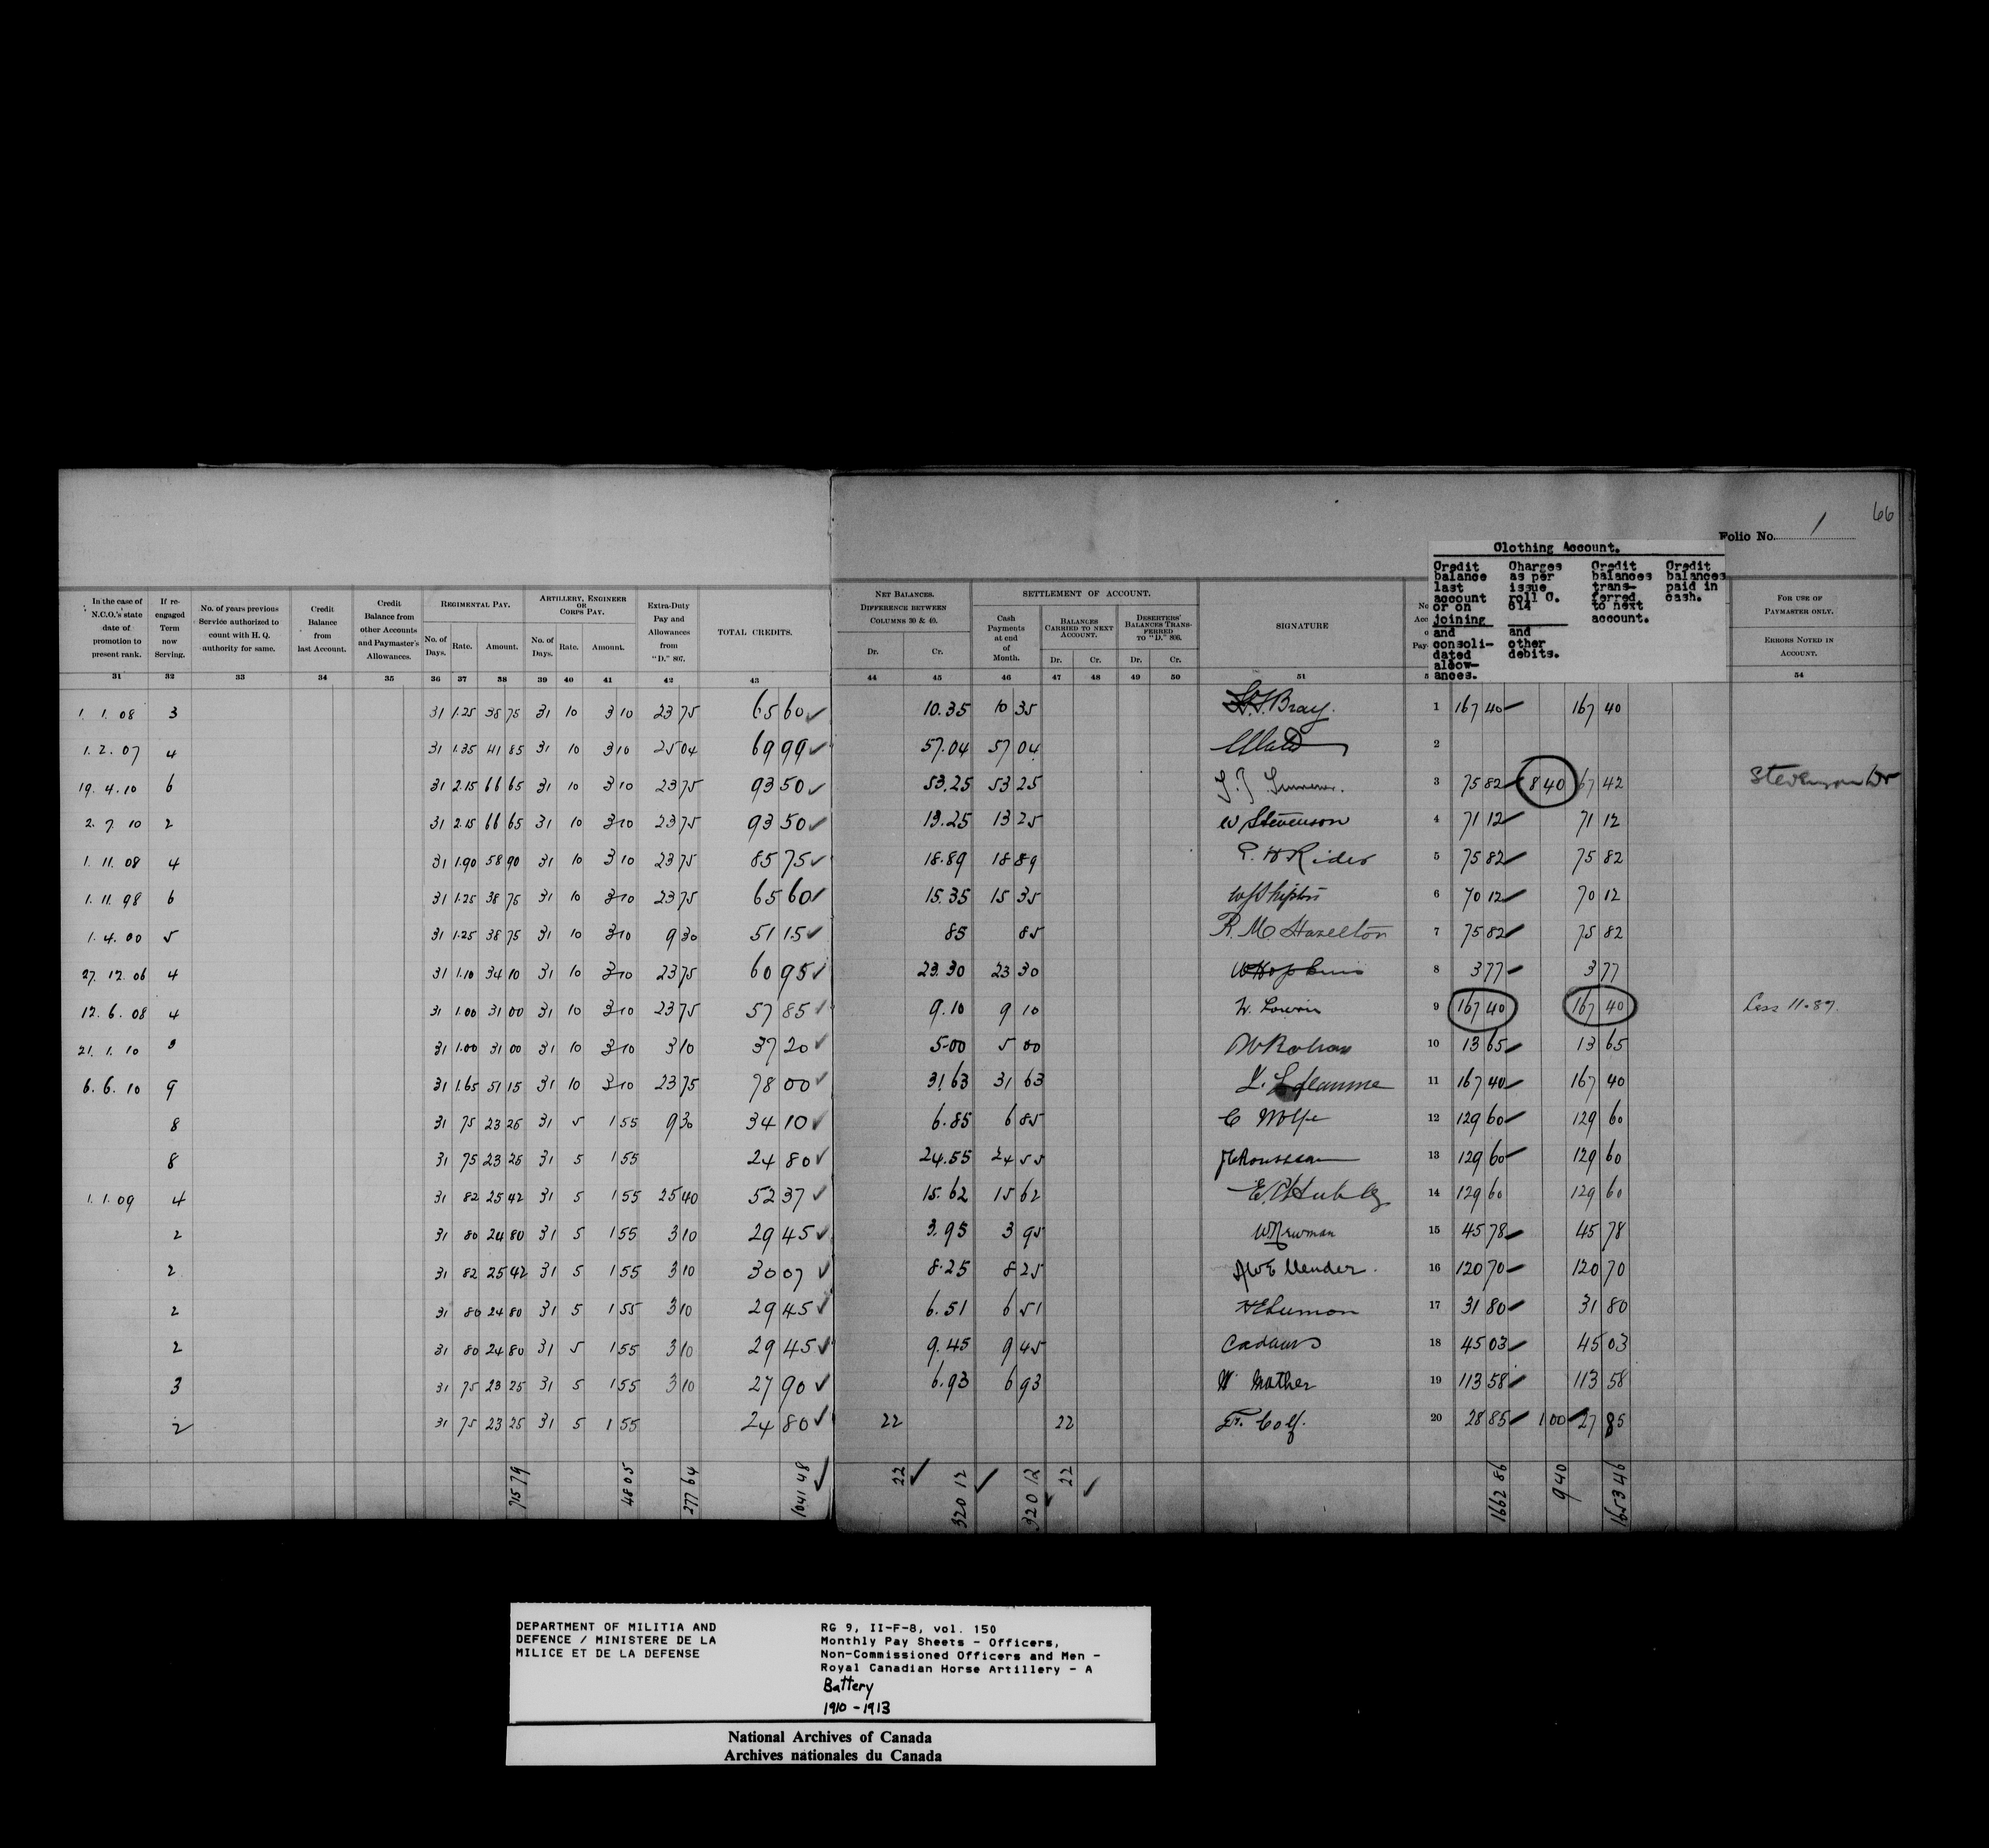 66
Folio No. 1
Clothing Account.
Credit balance last account or on joining and consoli- dated allow- ances.
Charges as per issue roll C. 614 and other debits.
Credit balances trans- ferred to next account.
Credit balances paid in cash.
In the case of N.C.O.'s state date of promotion to present rank.
If re- engaged Term now Serving.
No. of years previous Service authorized to count with H. Q. authority for same.
Credit Balance from last Account.
Credit Balance from other Accounts and Paymaster's Allowances.
Regimental Pay.
No. of Days. Rate. Amount.
Artillery, Engineer or Corps Pay.
No. of Days. Rate. Amount.
Extra-Duty Pay and Allowances from "D." 807.
Total Credits.
Net Balances. Difference between Columns 30 & 40.
Dr. Cr.
Settlement of Account.
Cash Payments at end of Month.
Balances carried to next Account.
Dr. Cr.
Deserters' Balances Trans- ferred to "D." 806.
Dr. Cr.
Signature
For use of Paymaster only.
Errors noted in Account.
31 32 33 34 35 36 37 38 39 40 41 42 43 44 45 46 47 48 49 50 51 54
1. 1. 08 3 31 1.25 38 75 31 10 3 10 23 75 65 60 ✓ 10.35 10 35 Bray. 1 167 40 167 40
1. 2. 07 4 31 1.35 41 85 31 10 3 10 25 04 69 99 ✓ 57.04 57 04 2
19. 4. 10 6 31 2.15 66 65 31 10 3 10 23 75 93 50 ✓ 53.25 53 25 3 75 82 8 40 67 42 Stevenson Dr
2. 7. 10 2 31 2.15 66 65 31 10 3 10 23 75 93 50 ✓ 13.25 13 25 W Stevenson 4 71 12 71 12
1. 11. 08 4 31 1.90 58 90 31 10 3 10 23 75 85 75 ✓ 18.89 18 89 Rider 5 75 82 75 82
1. 11. 98 6 31 1.25 38 75 31 10 3 10 23 75 65 60 ✓ 15.35 15 35 6 70 12 70 12
1. 4. 00 5 31 1.25 38 75 31 10 3 10 9 30 51 15 ✓ 85 85 R. M. Hazelton 7 75 82 75 82
27. 12. 06 4 31 1.10 34 10 31 10 3 10 23 75 60 95 ✓ 23.30 23 30 W Hopkins 8 3 77 3 77
12. 6. 08 4 31 1.00 31 00 31 10 3 10 23 75 57 85 ✓ 9.10 9 10 9 167 40 167 40 Less 11.87.
21. 1. 10 3 31 1.00 31 00 31 10 3 10 3 10 37 20 ✓ 5.00 5 00 10 13 65 13 65
6. 6. 10 9 31 1.65 51 15 31 10 3 10 23 75 78 00 ✓ 31.63 31 63 11 167 40 167 40
8 31 75 23 25 31 5 1 55 9 30 34 10 ✓ 6.85 6 85 C Wolfe 12 129 60 129 60
8 31 75 23 25 31 5 1 55 24 80 ✓ 24.55 24 55 Rousseau 13 129 60 129 60
1. 1. 09 4 31 82 25 42 31 5 1 55 25 40 52 37 ✓ 15.62 15 62 14 129 60 129 60
2 31 80 24 80 31 5 1 55 3 10 29 45 ✓ 3.95 3 95 W Newman 15 45 78 45 78
2 31 82 25 42 31 5 1 55 3 10 30 07 ✓ 8.25 8 25 16 120 70 120 70
2 31 80 24 80 31 5 1 55 3 10 29 45 ✓ 6.51 6 51 17 31 80 31 80
2 31 80 24 80 31 5 1 55 3 10 29 45 ✓ 9.45 9 45 18 45 03 45 03
3 31 75 23 25 31 5 1 55 3 10 27 90 ✓ 6.93 6 93 W Mather 19 113 58 113 58
2 31 75 23 25 31 5 1 55 24 80 ✓ 22 22 20 28 85 1 00 27 85
715 79 48 05 277 64 1041 48 ✓ 22 ✓ 320 12 ✓ 320 12 ✓ 22 ✓ 1662 86 9 40 1653 46
DEPARTMENT OF MILITIA AND
DEFENCE / MINISTERE DE LA
MILICE ET DE LA DEFENSE
RG 9, II-F-8, vol. 150
Monthly Pay Sheets - Officers,
Non-Commissioned Officers and Men -
Royal Canadian Horse Artillery - A
Battery
1910 - 1913
National Archives of Canada
Archives nationales du Canada